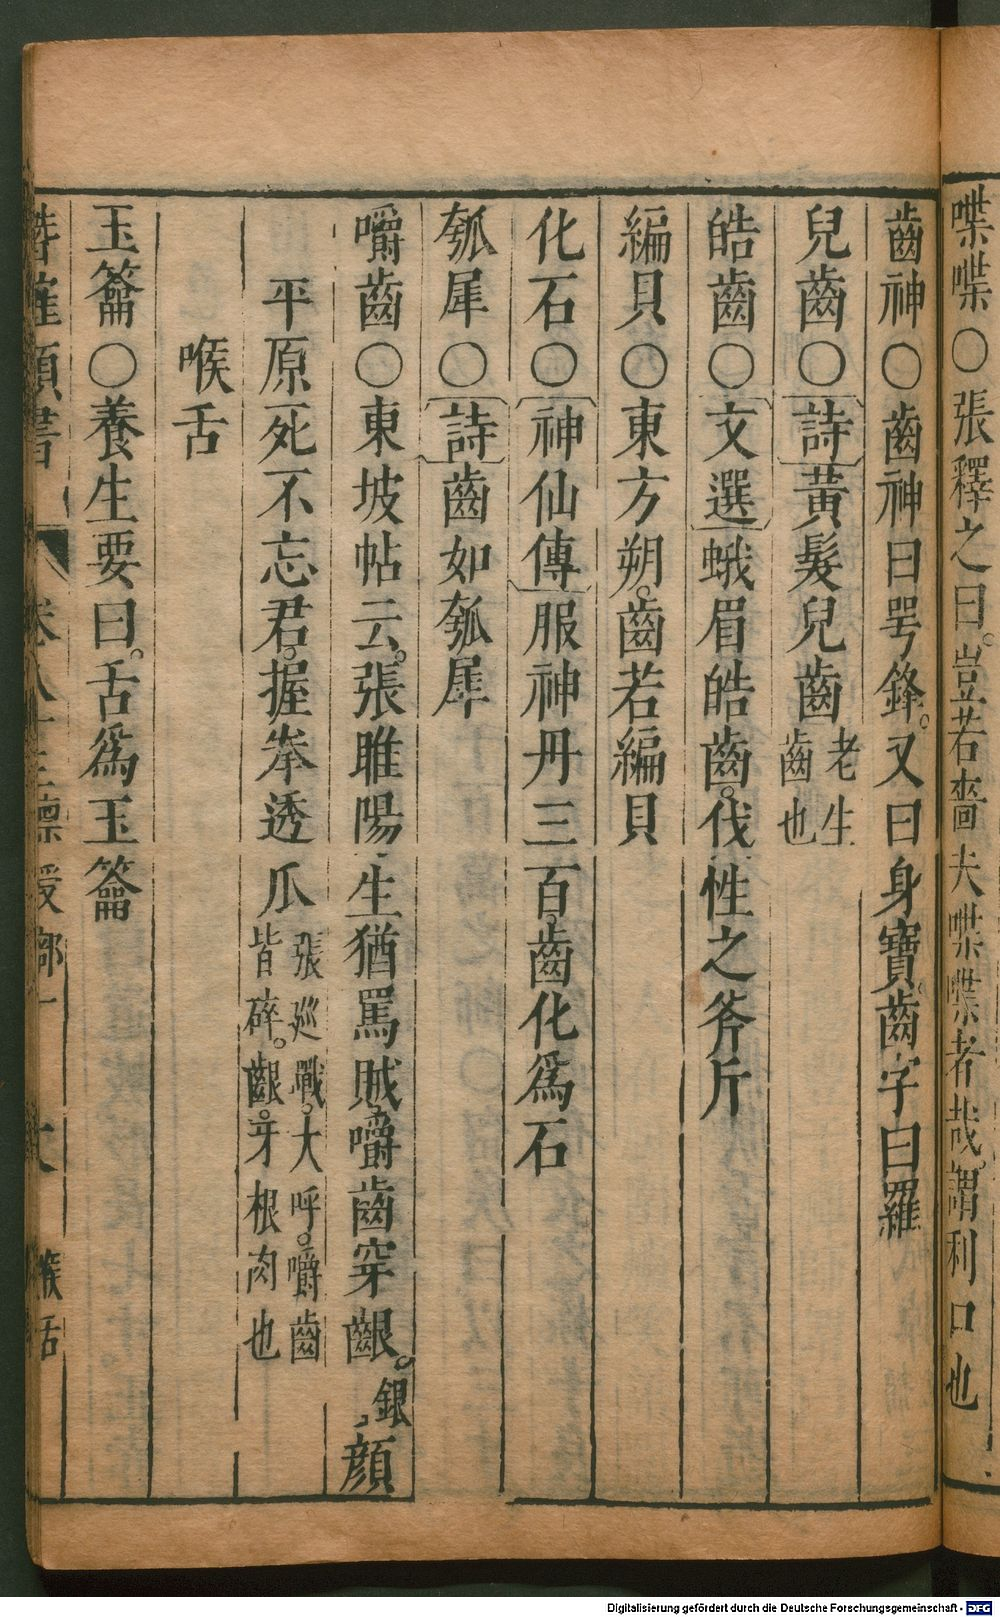 喋喋○張釋之曰。豈若嗇夫喋喋者哉。謂利口也
齒神○齒神曰咢鋒。又曰身寶。齒字曰羅
兒齒○詩黃髮兒齒老生齒也
皓齒○文選蛾眉皓齒。伐性之斧斤
編貝○東方朔。齒若編貝
化石○神仙傳服神丹三百。齒化爲石
瓠犀○詩齒如瓠犀
嚼齒○東坡帖云。張睢陽生猶罵賊。嚼齒穿齦。銀顔
平原死不忘君。握拳透爪張巡戰。大呼。嚼齒皆碎。齦。牙根肉也
喉舌
玉籥○養生要曰。舌爲玉籥
類書 卷八十三 稟受部一 大 喉舌
Digitalisierung gefördert durch die Deutsche Forschungsgemeinschaft - DFG